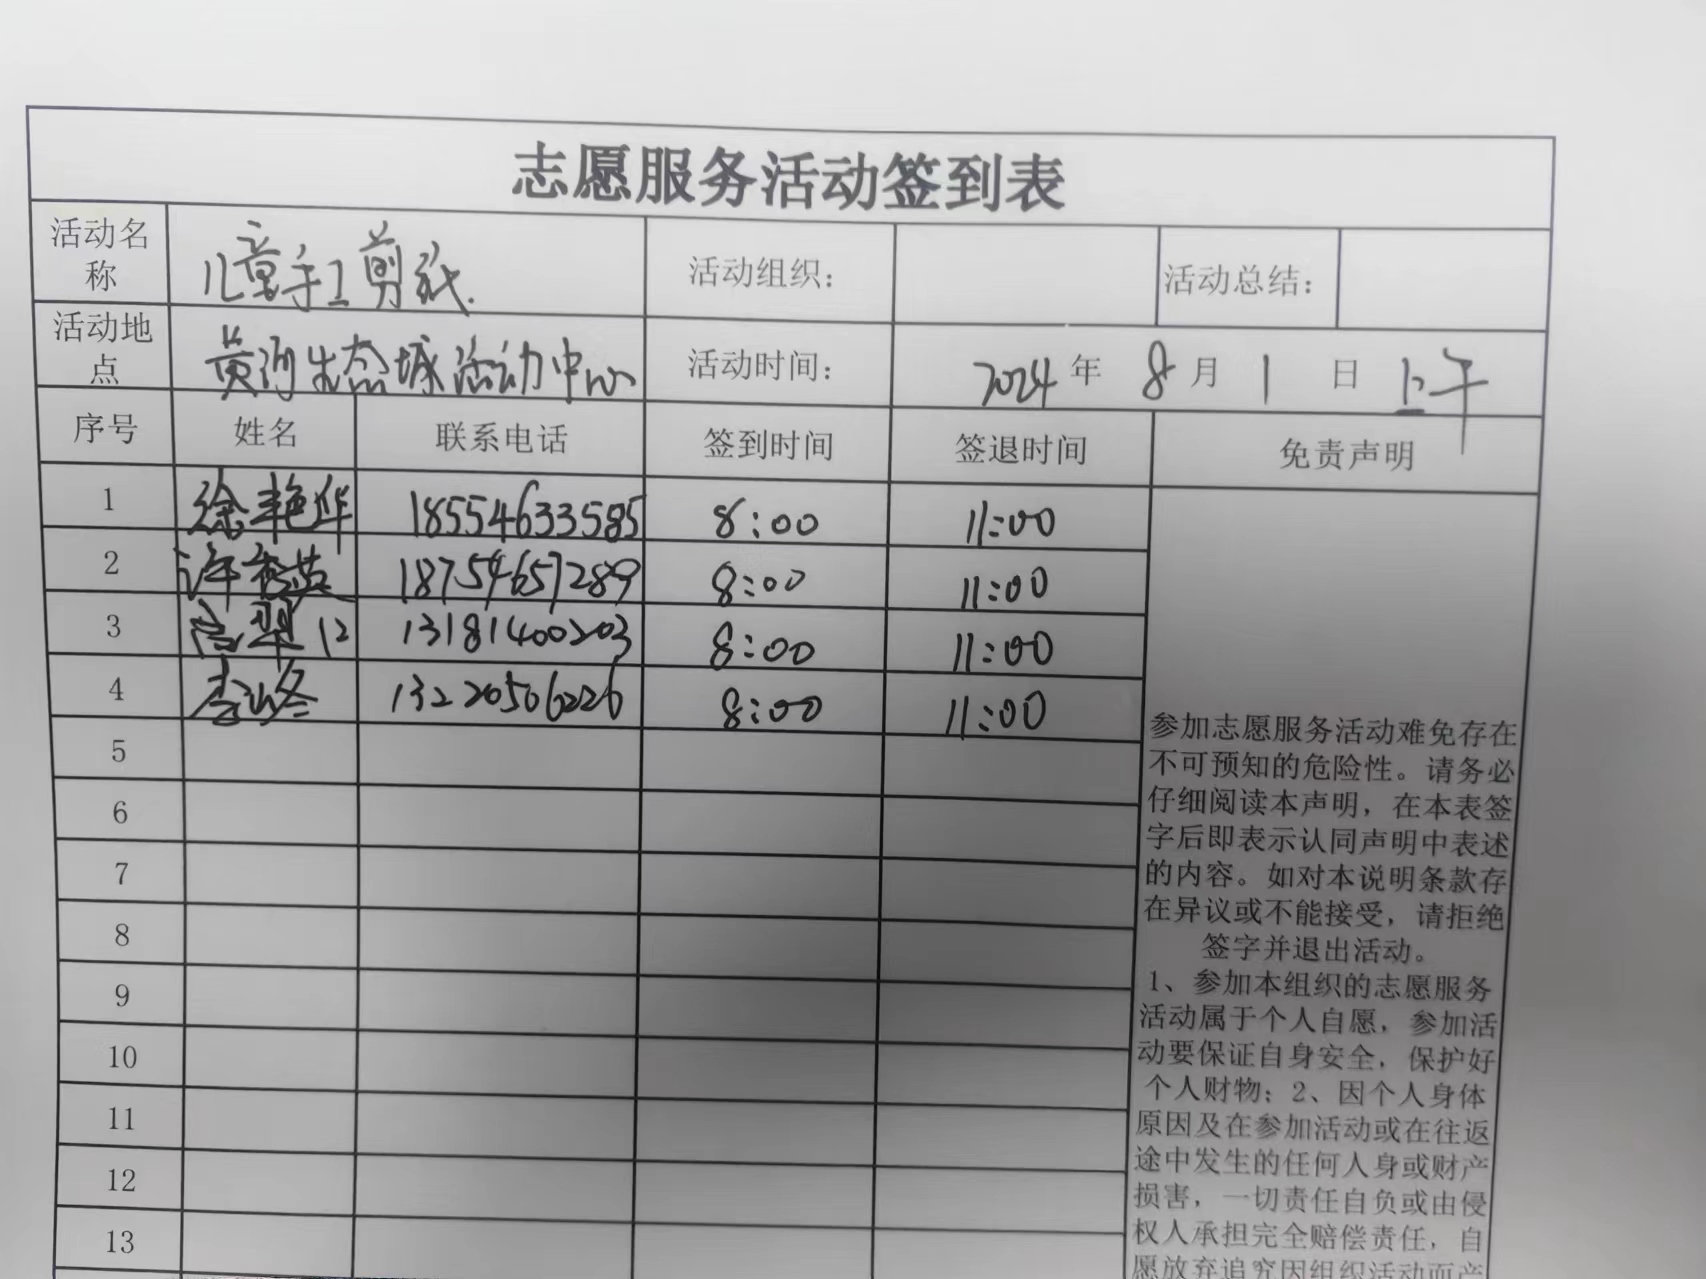 志愿服务活动签到表
活动名称 儿童手工剪纸. 活动组织: 活动总结:
活动地点 黄河生态城活动中心 活动时间: 2024 年 8 月 1 日 上午
序号 姓名 联系电话 签到时间 签退时间 免责声明
1 徐艳华 18554633585 8:00 11:00
2 许秀英 18754657289 8:00 11:00
3 13181400203 8:00 11:00
4 李冬 13220506226 8:00 11:00
5
6
7
8
9
10
11
12
13
参加志愿服务活动难免存在
不可预知的危险性。请务必
仔细阅读本声明，在本表签
字后即表示认同声明中表述
的内容。如对本说明条款存
在异议或不能接受，请拒绝
签字并退出活动。
1、参加本组织的志愿服务
活动属于个人自愿，参加活
动要保证自身安全，保护好
个人财物；2、因个人身体
原因及在参加活动或在往返
途中发生的任何人身或财产
损害，一切责任自负或由侵
权人承担完全赔偿责任，自
愿放弃追究因组织活动而产